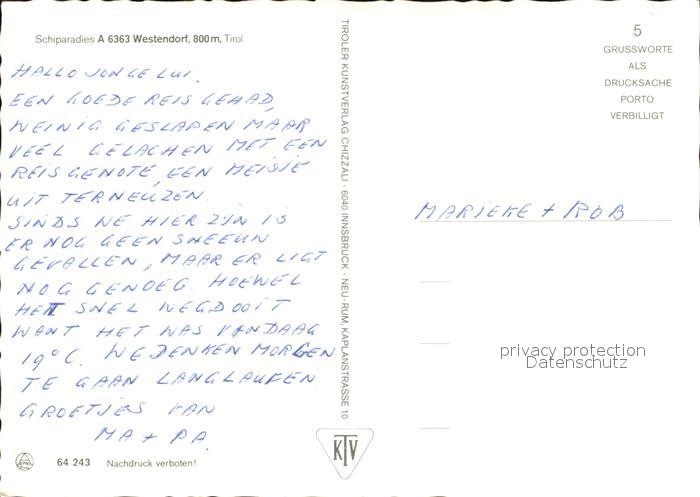 Schiparadies A 6363 Westendorf, 800 m, Tirol
HALLO JONGE LUI.
EEN GOEDE REIS GEHAD,
WEINIG GESLAPEN MAAR
VEEL GELACHEN MET EEN
REISGENOTE, EEN MEISJE
UIT TERNEUZEN.
SINDS WE HIER ZIJN IS
ER NOG GEEN SNEEUW
GEVALLEN, MAAR ER LIGT
NOG GENOEG. HOEWEL
HET SNEL WEGDOOIT
WANT HET WAS VANDAAG
19°C. WE DENKEN MORGEN
TE GAAN LANGLAUFEN
GROETJES VAN
MA + PA.
64 243 Nachdruck verboten!
TIROLER KUNSTVERLAG CHIZZALI · 6040 INNSBRUCK · NEU-RUM, KAPLANSTRASSE 10
KTV
5
GRUSSWORTE
ALS
DRUCKSACHE
PORTO
VERBILLIGT
MARIEKE + ROB
privacy protection
Datenschutz